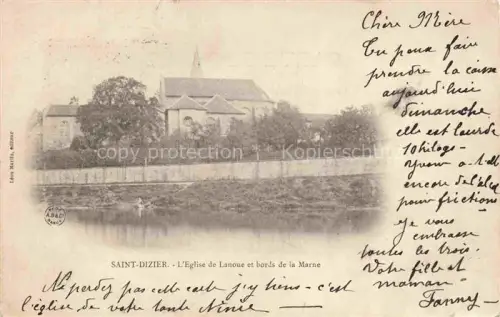 Chère Mère
Tu peux faire
prendre la caisse
aujourd'hui
dimanche
elle est lourde
10 kilogs -
Yvonne a-t-elle
encore de l'alcool
pour frictions
Je vous
embrasse
toutes les trois.
Votre fille et
maman -
Fanny -
copyright by Kunst und Ansichtskarten Borscheim
SAINT-DIZIER. - L'Eglise de Lanoue et bords de la Marne
Ne perdez pas cette carte j'y tiens - c'est
l'église de votre tante Ninie -